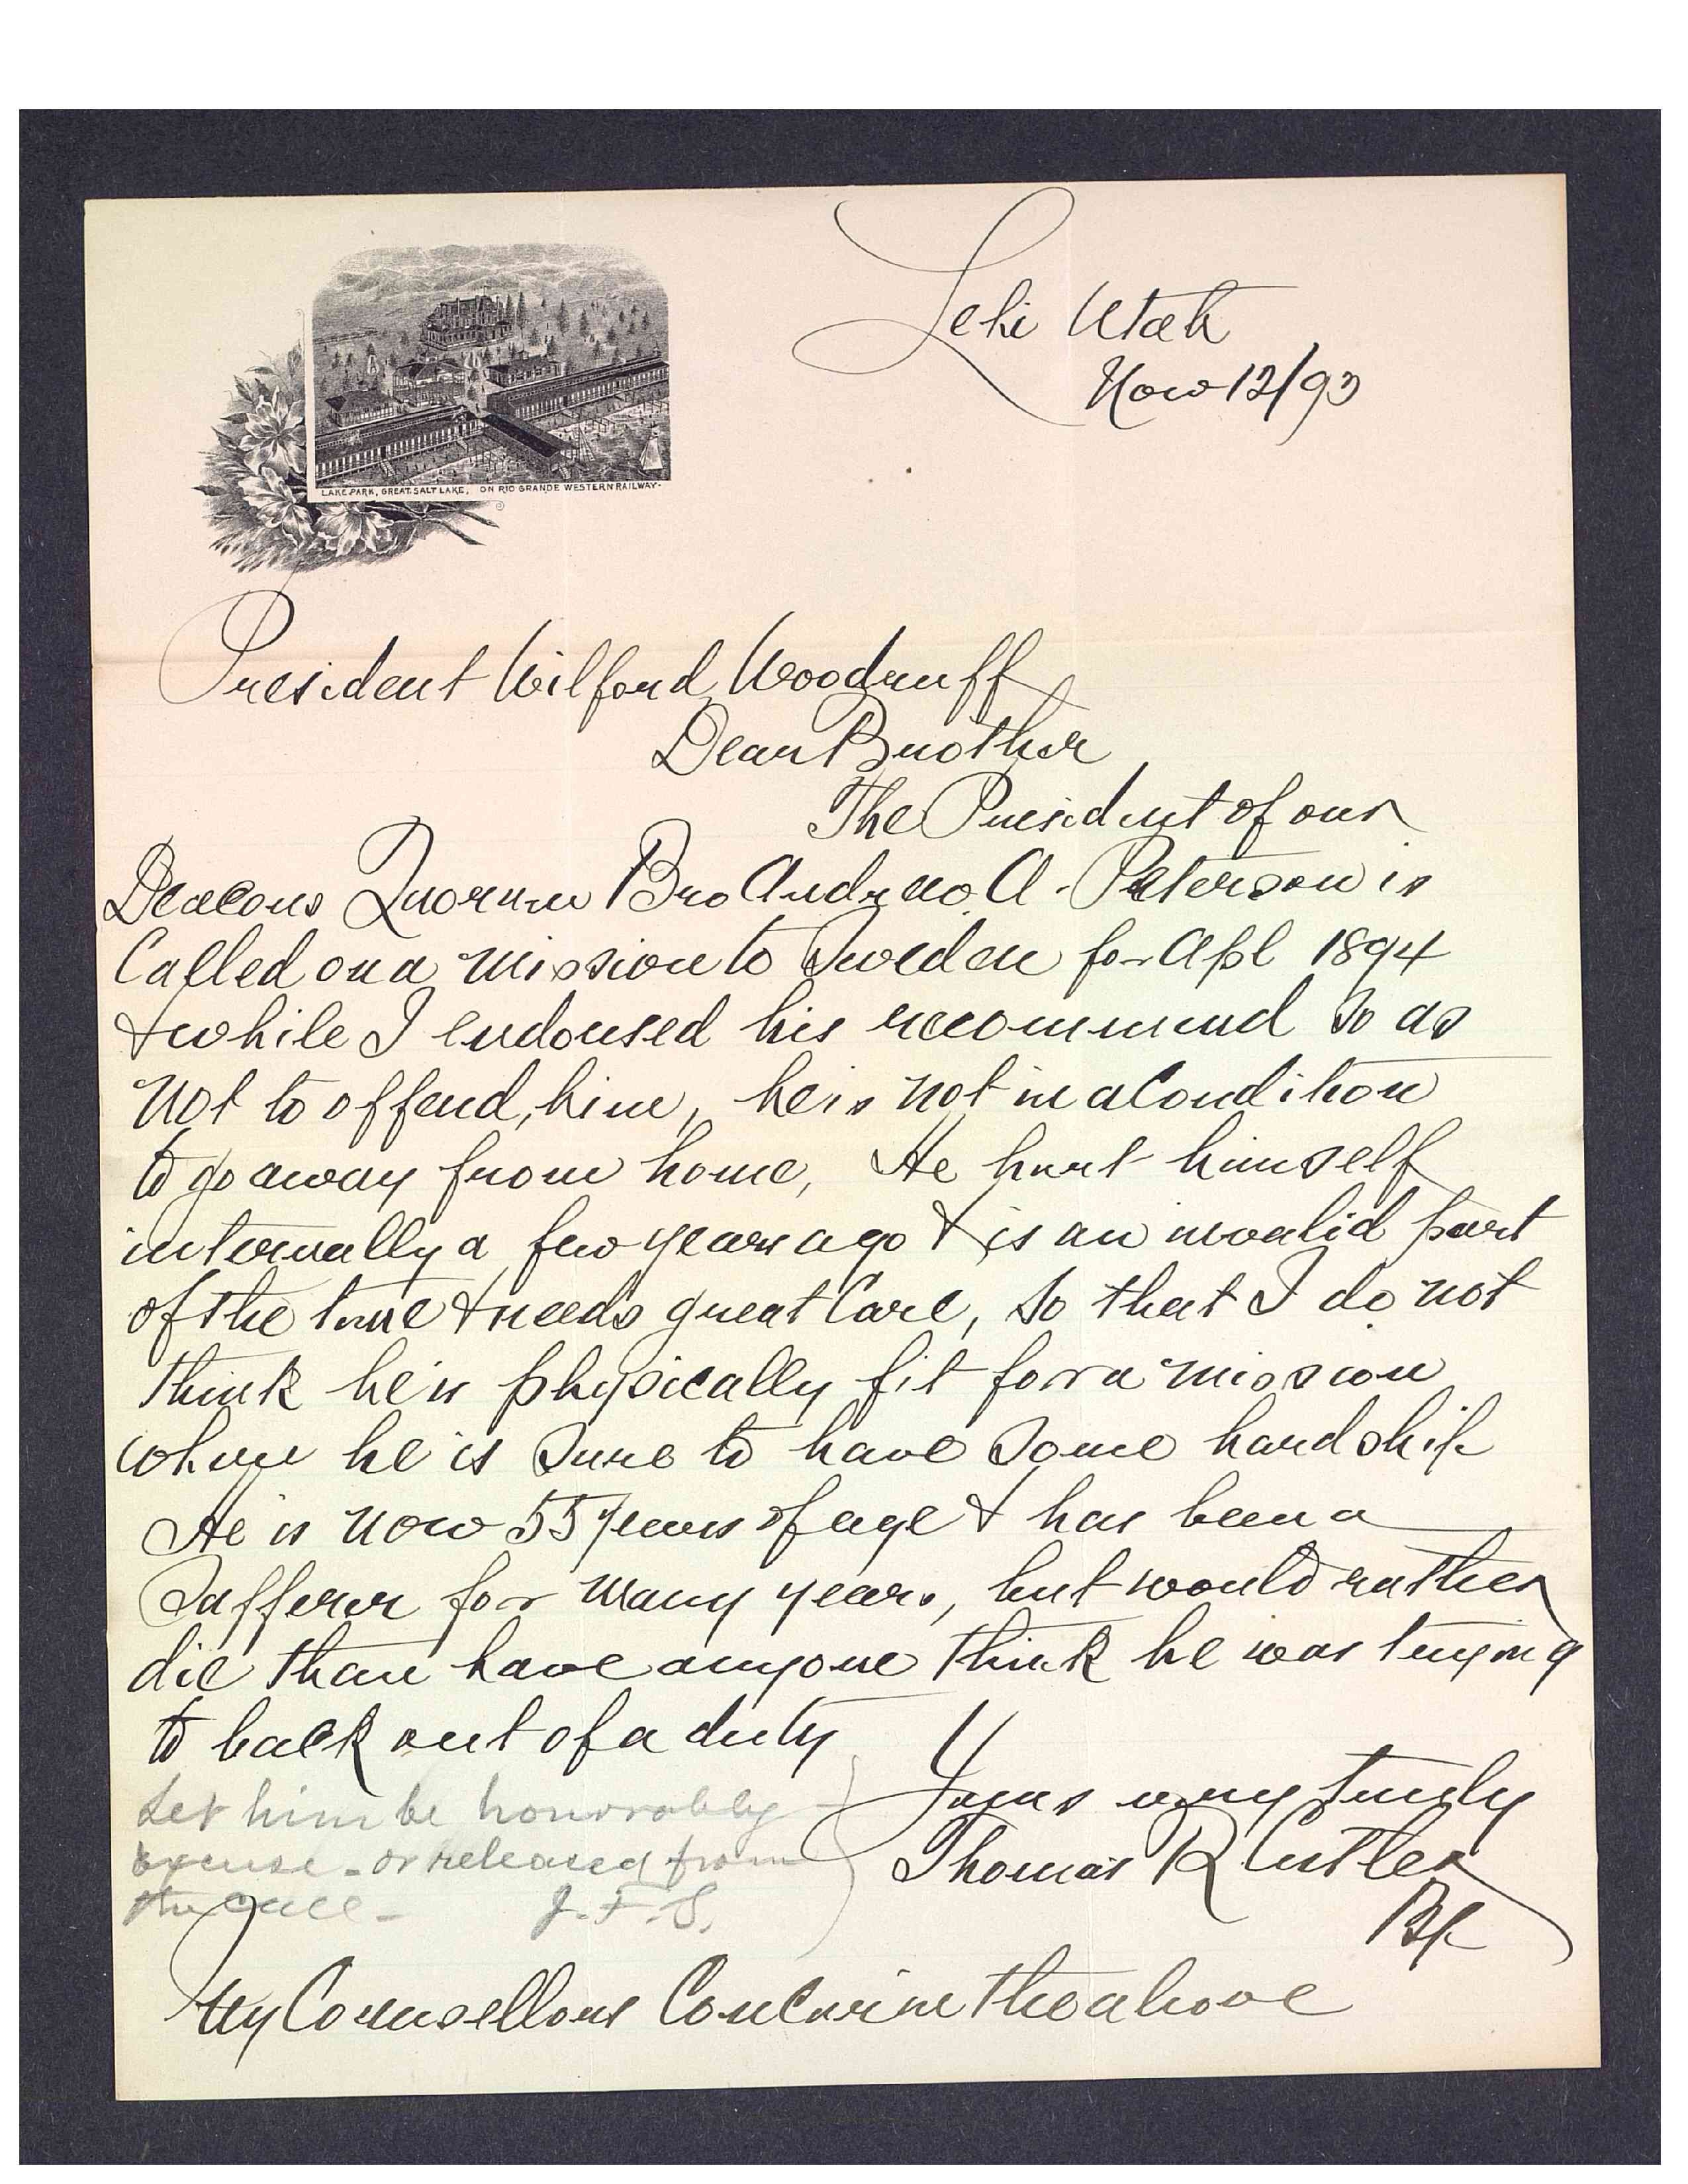 LAKE PARK, GREAT SALT LAKE, ON RIO GRANDE WESTERN RAILWAY.
Lehi Utah
Nov 12/93
President Wilford Woodruff
Dear Brother
The President of our
Deacons Quorum Bro Andrew A. Peterson is
Called on a mission to Sweden for Apl 1894
& while I endorsed his recommend so as
not to offend him, he is not in a Condition
to go away from home, He hurt himself
internally a few years ago & is an invalid part
of the time & needs great Care, so that I do not
think he is physically fit for a mission
where he is sure to have some hardship
He is now 55 years of age & has been a
Sufferer for many years, but would rather
die than have anyone think he was trying
to back out of a duty
Yours very truly
Thomas R Cutler
Bp
Let him be honorably
excuse - or released from
the call - J. F. S.
My Counsellors Concur in the above